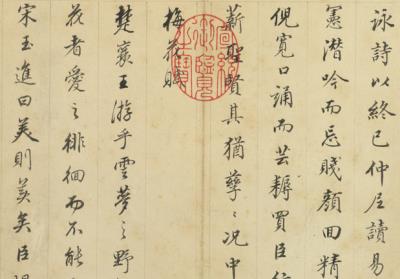 詠詩以終已仲尼讀易
憲潛吟而忘賤顏回精
倪寬口誦而芸耨買臣行
薪聖賢其猶孳〻況中
梅花賦
楚襄王游乎雲夢之野
花者愛之徘徊而不能
宋玉進曰美則美矣臣